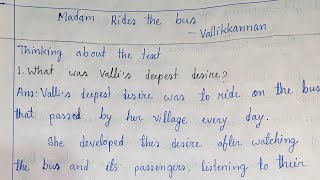 Madam Rides the bus
- Vallikkannan
Thinking about the text
1. What was Valli's deepest desire?
Ans: Valli's deepest desire was to ride on the bus
that passed by her village every day.
She developed this desire after watching
the bus and its passengers, listening to their